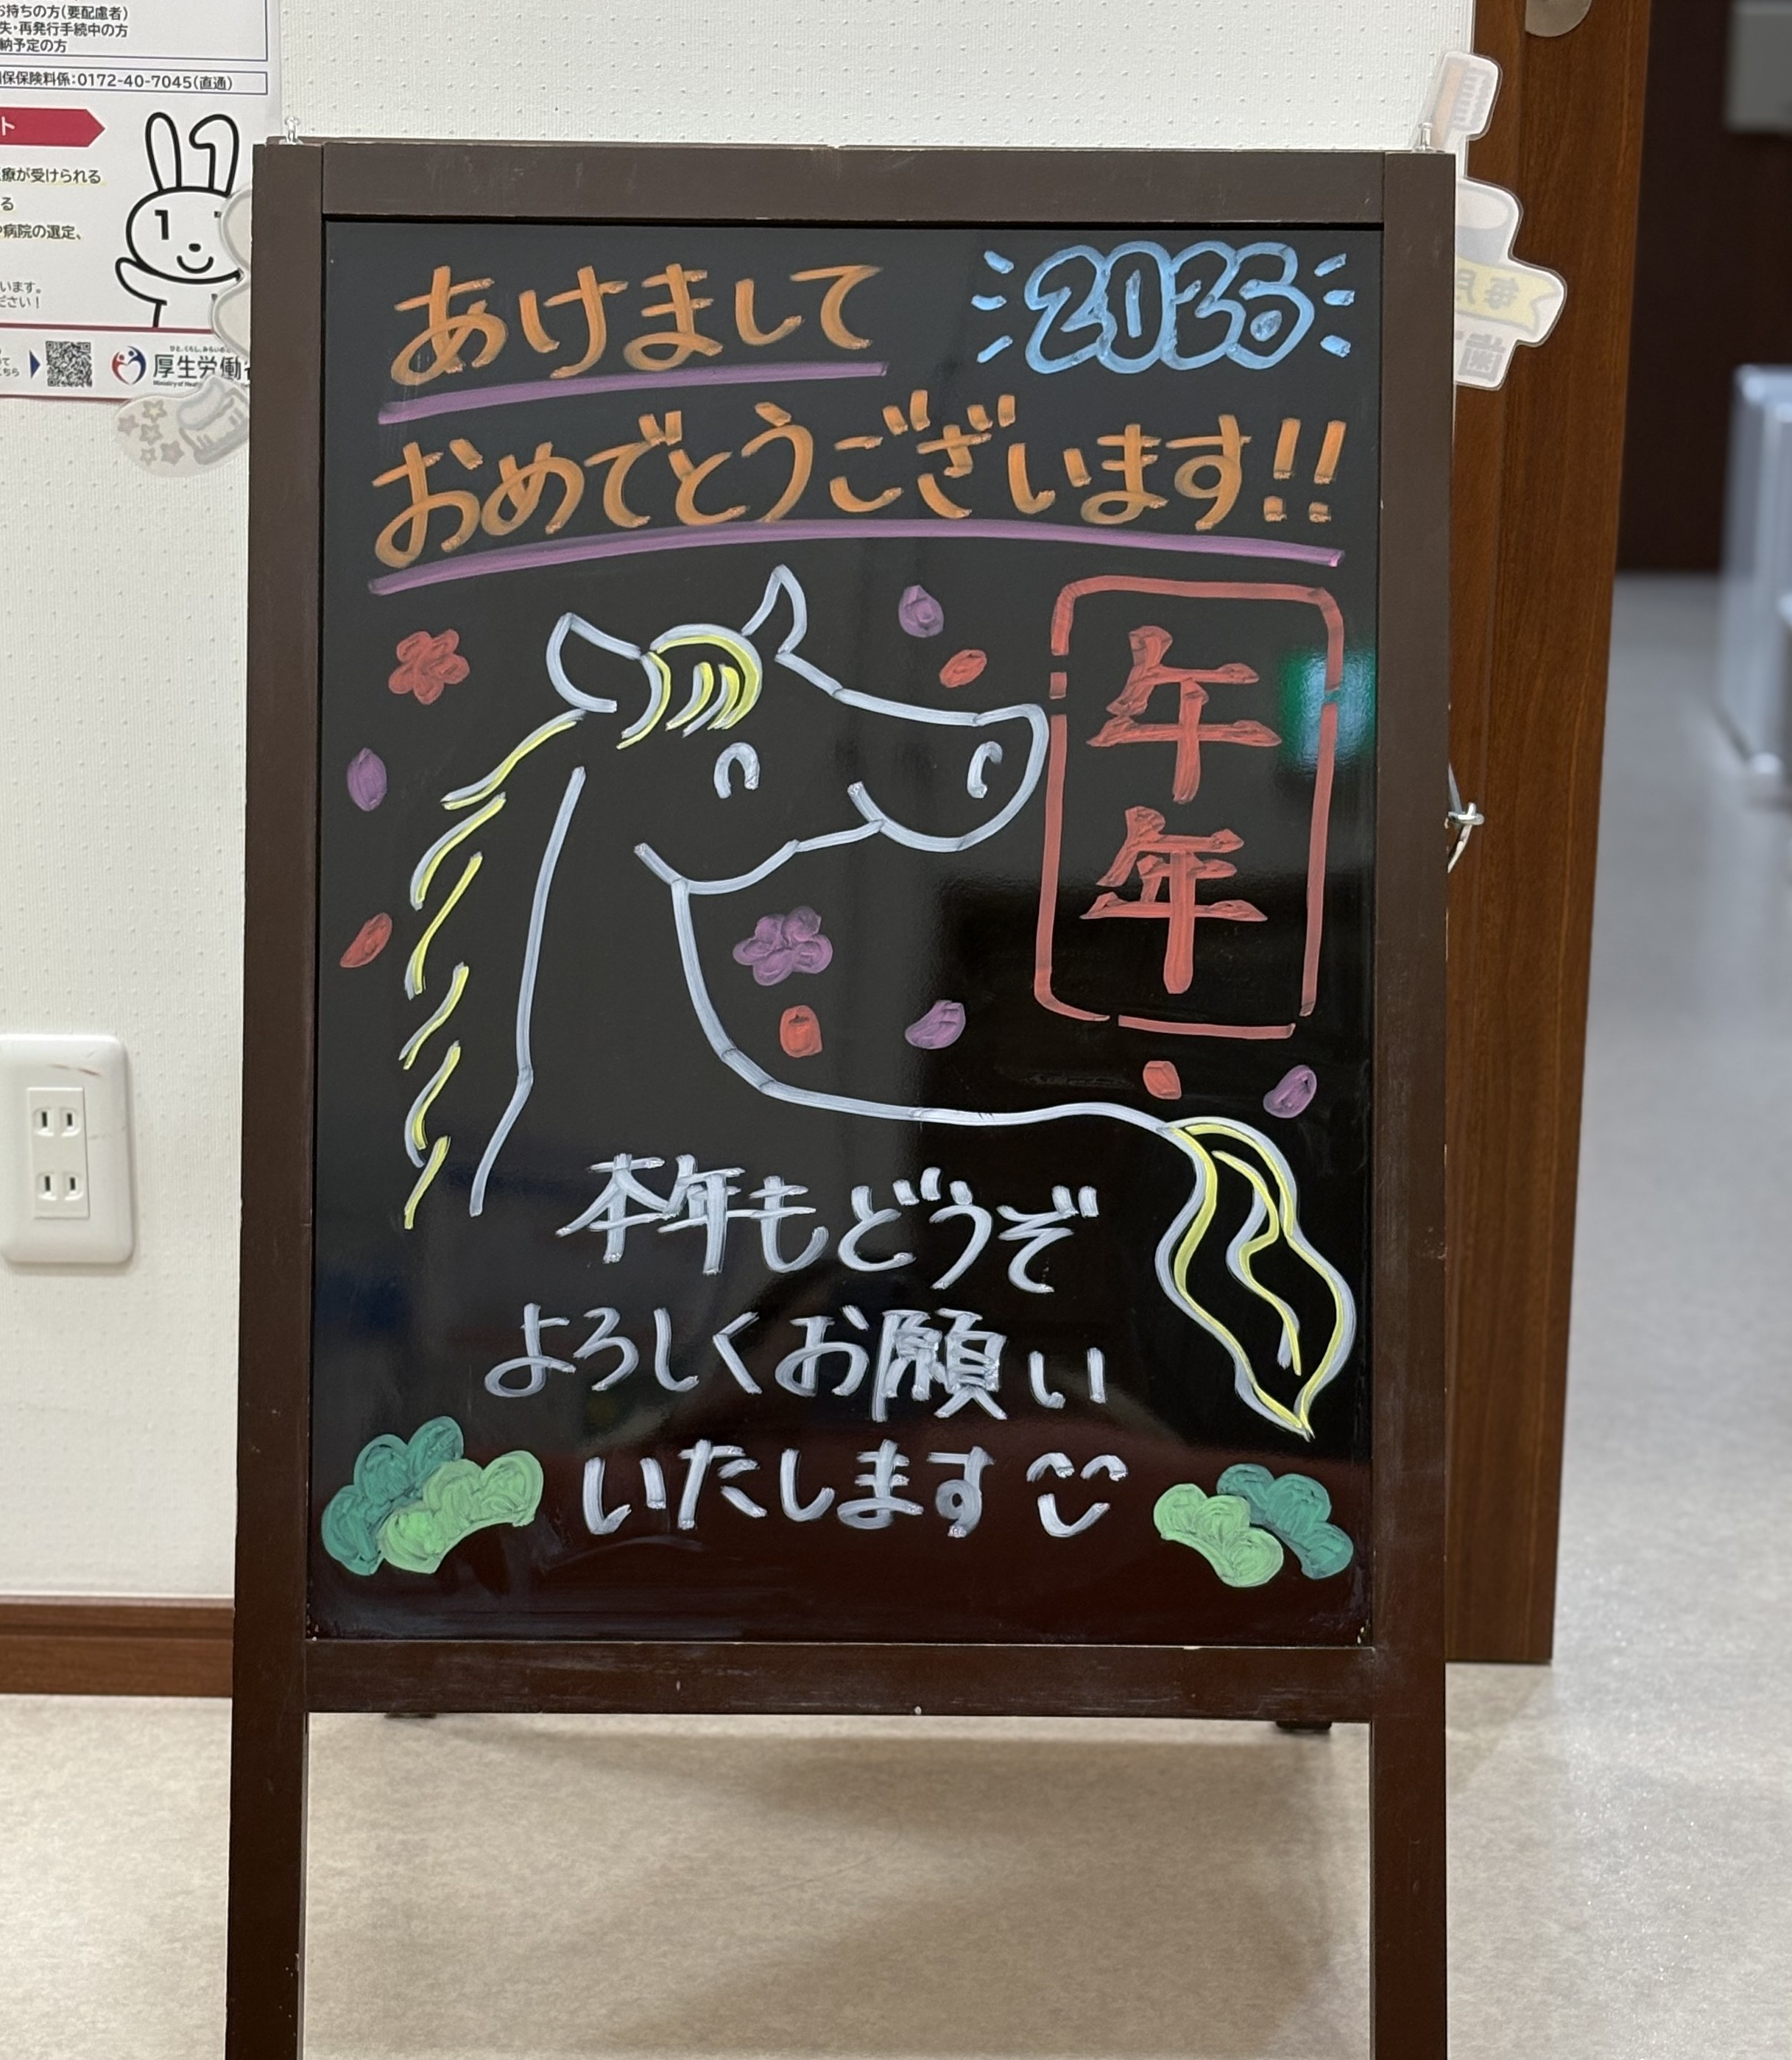 お持ちの方(要配慮者)
失・再発行手続中の方
納予定の方
保保険料係:0172-40-7045(直通)
ト
療が受けられる
る
病院の選定、
います。
ださい!
ひと、くらし、みらいのため
厚生労働省
Ministry of Health
あけまして
2026
おめでとうございます!!
午年
本年もどうぞ
よろしくお願い
いたします
毎月
歯